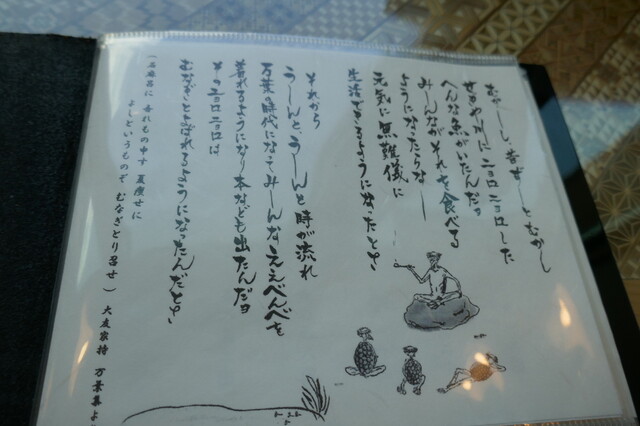 むかーし、昔ずーとむかし
せきや川にニョロニョロした
へんな魚がいたんだョ
みーしながそれを食べてる
ようになったらなー
元気に無難儀に
生活できるようになったとさ
それから
うーんと、うーんと時が流れ
万葉の時代になってみーんなええべんべを
着れるようになり本なども出たんだョ
そのニョロニョロは
むなぎとよばれるようになったんだとさ
(石麻呂に 吾れもの申す 夏痩せに
よしというものぞ むなぎとり召せ) 大友家持 万葉集より